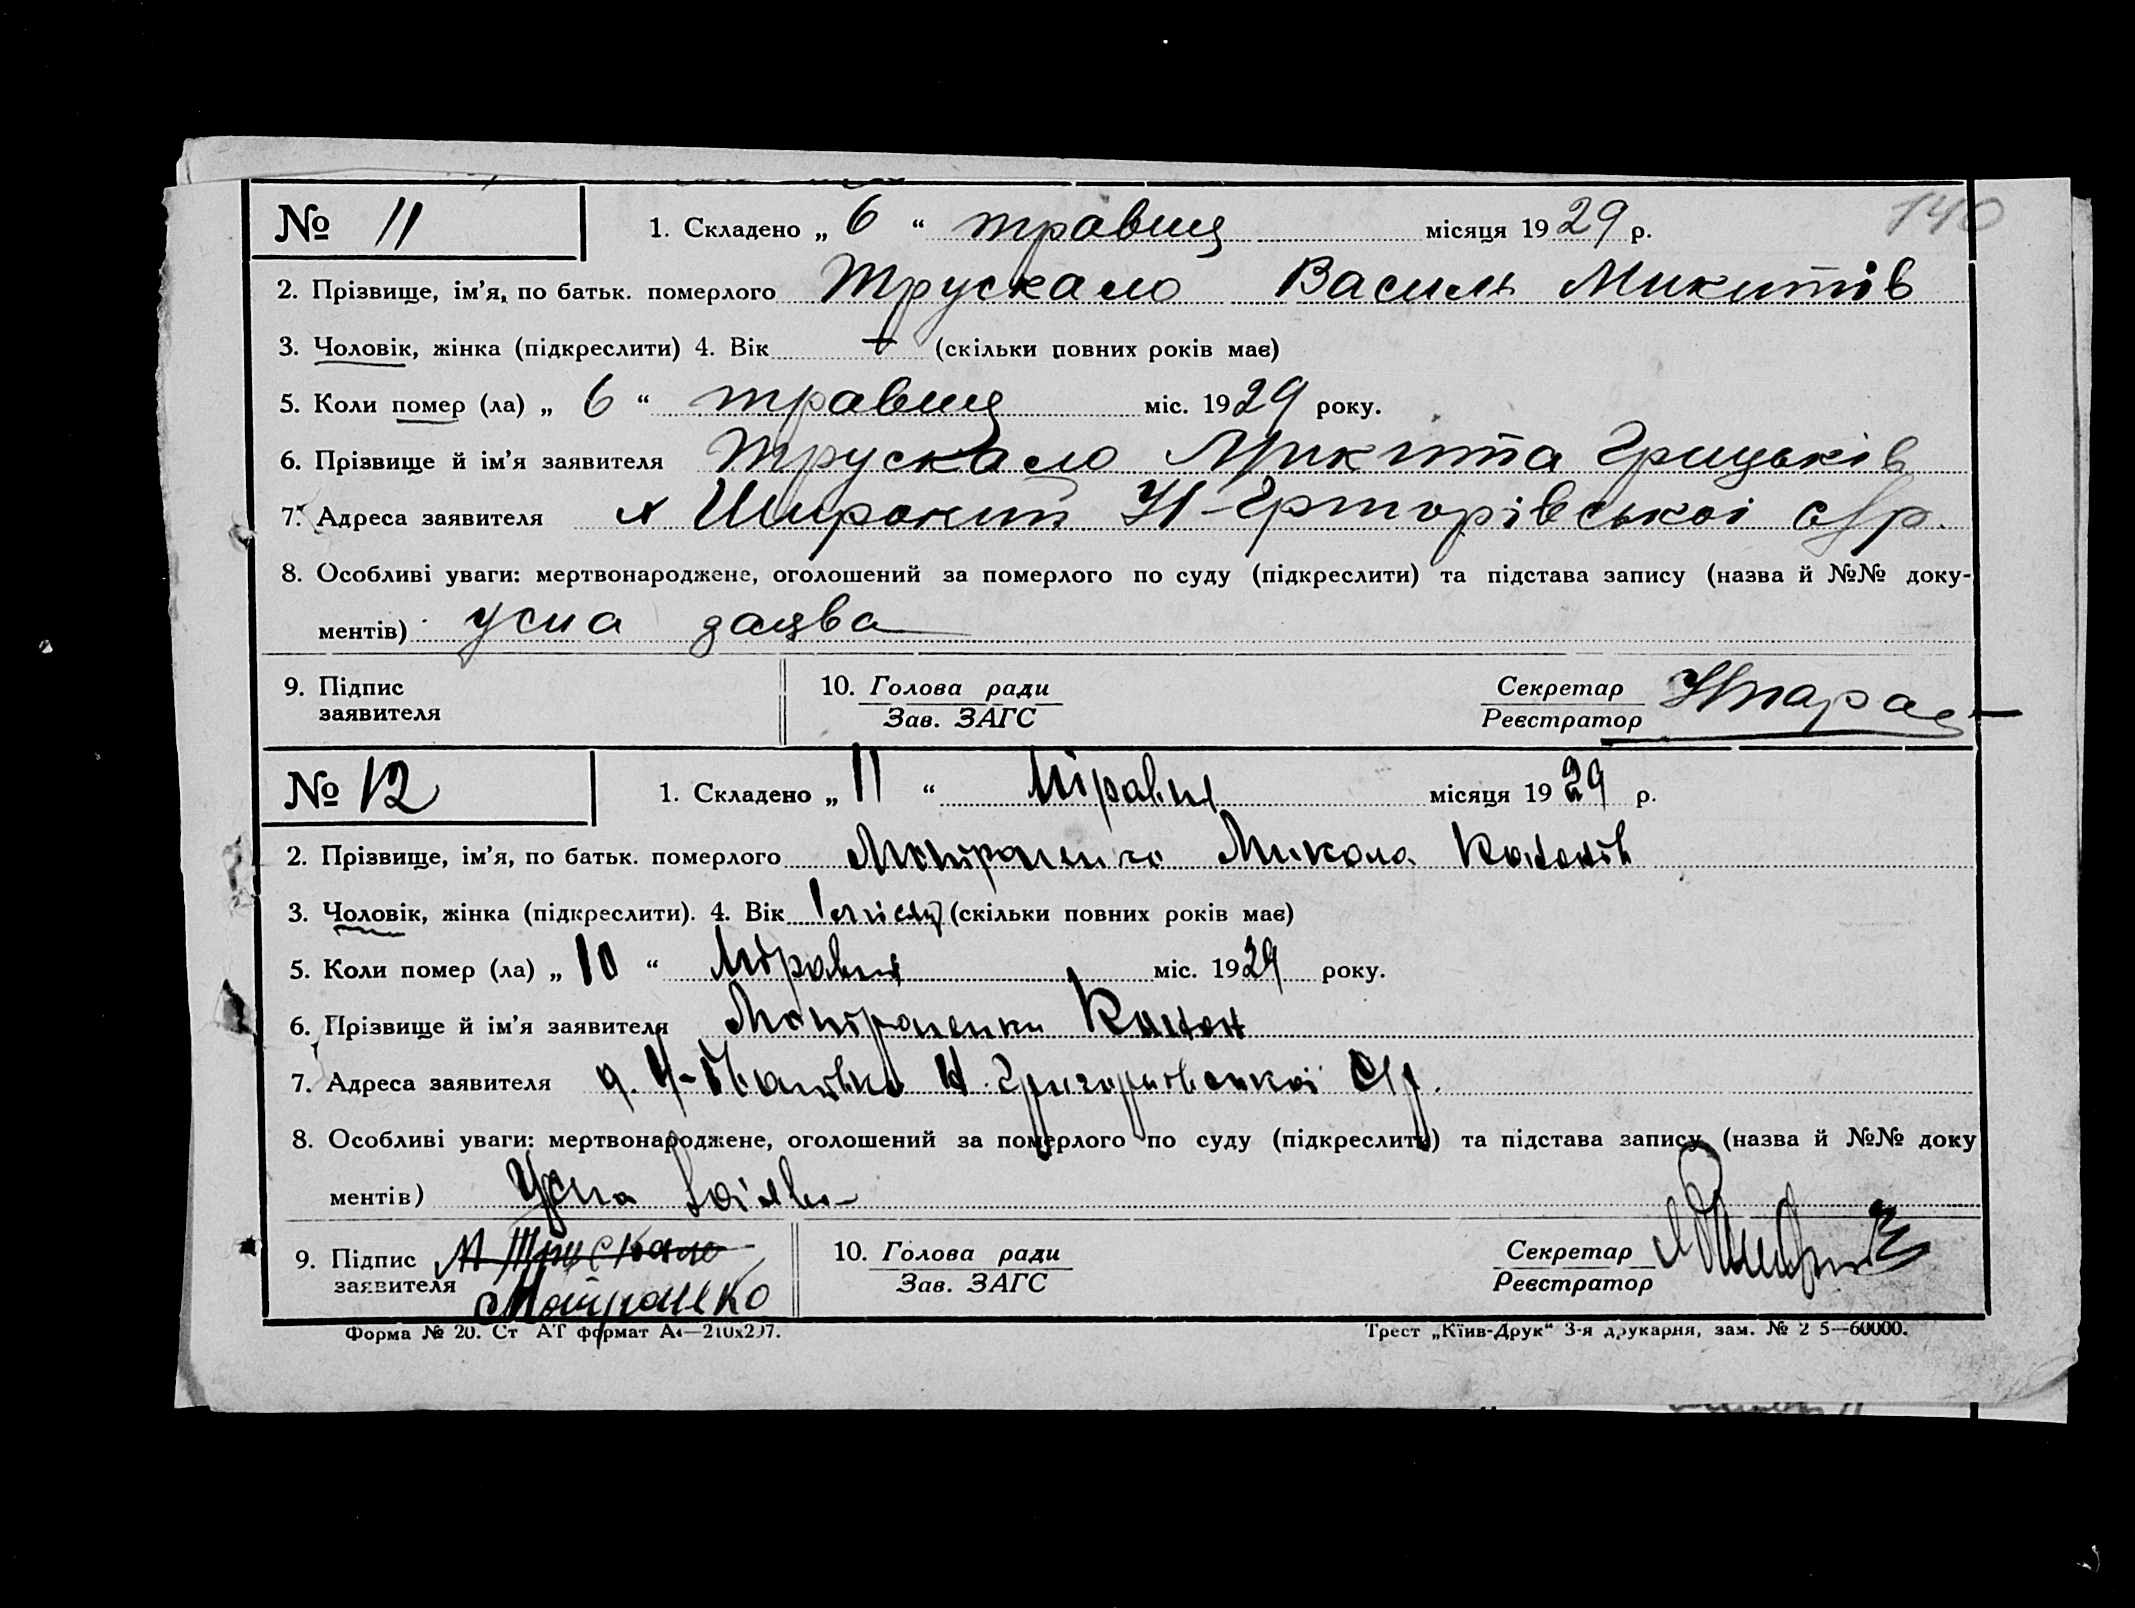 140
№ 11 1. Складено „ 6 “ травня місяця 1929 р.
2. Прізвище, ім’я, по батьк. померлого Трускало Василь Микитів
3. Чоловік, жінка (підкреслити) 4. Вік (скільки повних років має)
5. Коли помер (ла) „ 6 “ травня міс. 1929 року.
6. Прізвище й ім’я заявителя Трускало Микита Грицьків
7. Адреса заявителя х Широкий Н-Григорівської с/р.
8. Особливі уваги: мертвонароджене, оголошений за померлого по суду (підкреслити) та підстава запису (назва й №№ доку-
ментів) усна заява
9. Підпис заявителя 10. Голова ради Зав. ЗАГС Секретар Реєстратор
№ 12 1. Складено „ 11 “ Травня місяця 1929 р.
2. Прізвище, ім’я, по батьк. померлого Микола
3. Чоловік, жінка (підкреслити). 4. Вік 1 (скільки повних років має)
5. Коли помер (ла) „ 10 “ Травня міс. 1929 року.
6. Прізвище й ім’я заявителя
7. Адреса заявителя Н. Григорівської С/р.
8. Особливі уваги: мертвонароджене, оголошений за померлого по суду (підкреслити) та підстава запису (назва й №№ доку
ментів) Усна Заява
9. Підпис заявителя М Трускало 10. Голова ради Зав. ЗАГС Секретар Реєстратор
Форма № 20. Ст АТ формат А4—210х297. Трест „Київ-Друк“ 3-я друкарня, зам. № 2 5—60000.